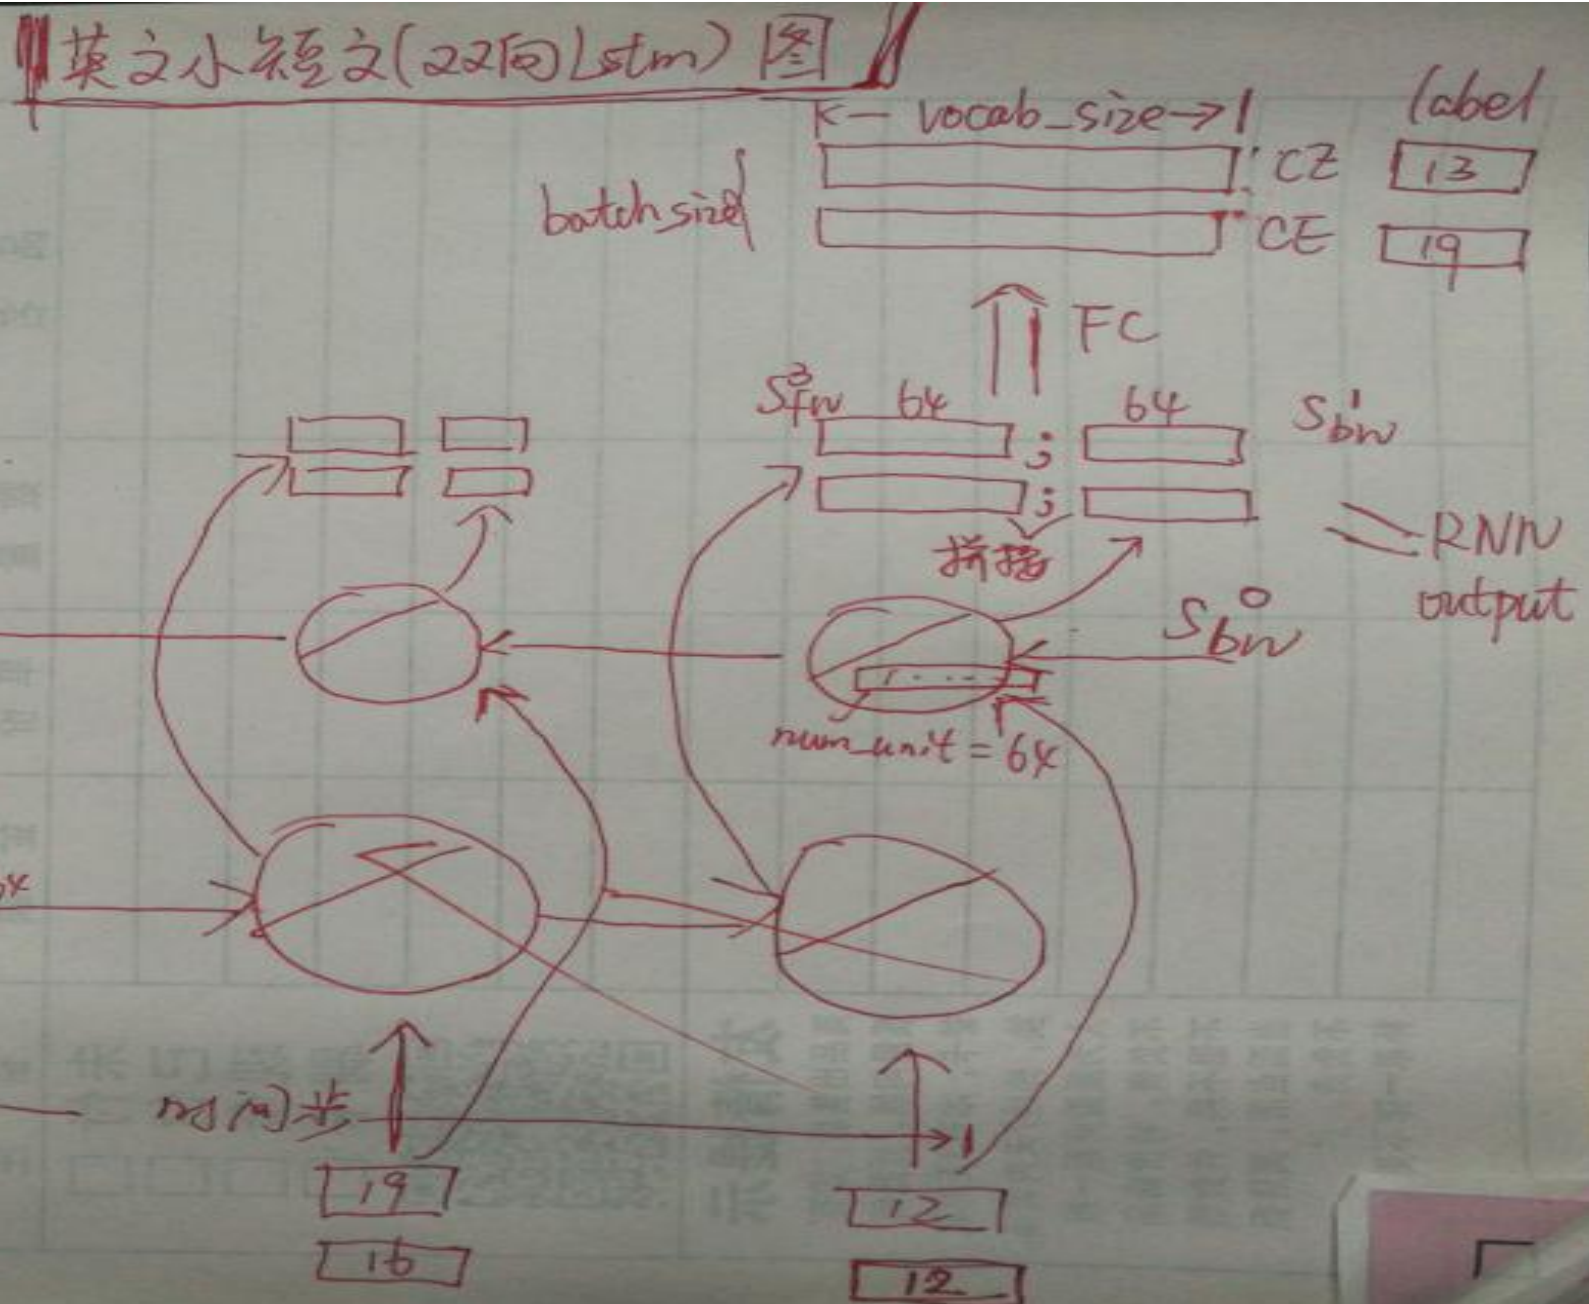 英文小短文(双向Lstm)图
|<— vocab_size —>|
label
batchsize
CZ
13
CE
19
FC
S³fw
64
64
S¹bw
;
;
拼接
RNN
output
S⁰bw
num_unit = 64
时间步
19
12
16
12